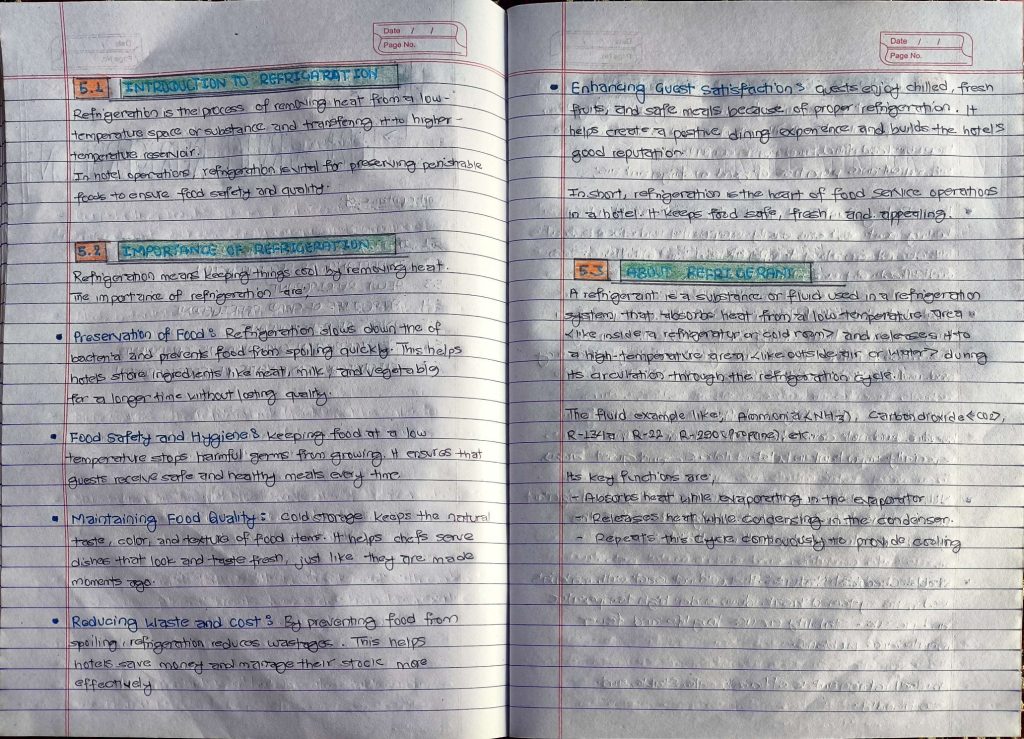 Date / /
Page No.
5.1 INTRODUCTION TO REFRIGARATION
Refrigeration is the process of removing heat from a low-
temperature space or substance and transferring it to higher-
temperature reservoir.
In hotel operations, refrigeration is vital for preserving perishable
foods to ensure food safety and quality.
5.2 IMPORTANCE OF REFRIGERATION
Refrigeration means keeping things cool by removing heat.
The importance of refrigeration are;
• Preservation of Food: Refrigeration slows down the of
bacteria and prevents food from spoiling quickly. This helps
hotels store ingredients like meat, milk, and vegetable
for a longer time without losting quality.
• Food Safety and Hygiene: keeping food at a low
temperature stops harmful germs from growing. It ensures that
guests receive safe and healthy meals every time.
• Maintaining Food Quality: Cold storage keeps the natural
taste, color, and texture of food items. It helps chefs serve
dishes that look and taste fresh, just like they are made
moments ago.
• Reducing Waste and cost: By preventing food from
spoiling, refrigeration reduces wastages. This helps
hotels save money and manage their stock more
effectively
Date / /
Page No.
• Enhancing Guest Satisfaction: Guests enjoy chilled, fresh
fruits, and safe meals because of proper refrigeration. It
helps create a positive dining experience and builds the hotel's
good reputation
In short, refrigeration is the heart of food service operations
in a hotel. It keeps food safe, fresh, and appealing.
5.3 ABOUT REFRIGERANT
A refrigerant is a substance or fluid used in a refrigeration
system that absorbs heat from a low temperature area
<like inside a refrigerator or cold room> and releases it to
a high-temperature area <like outside air or water> during
its circultation through the refrigeration cycle.
The fluid example like; Ammonia <NH-3>, Carbondioxide <CO2>,
R-134a, R-22, R-290 (Propane), etc.
Its key functions are;
- Absorbs heat while evaporating in the evaporator
- Releases heat while condensing in the condenser.
- Repeats this cycle continuously to provide cooling